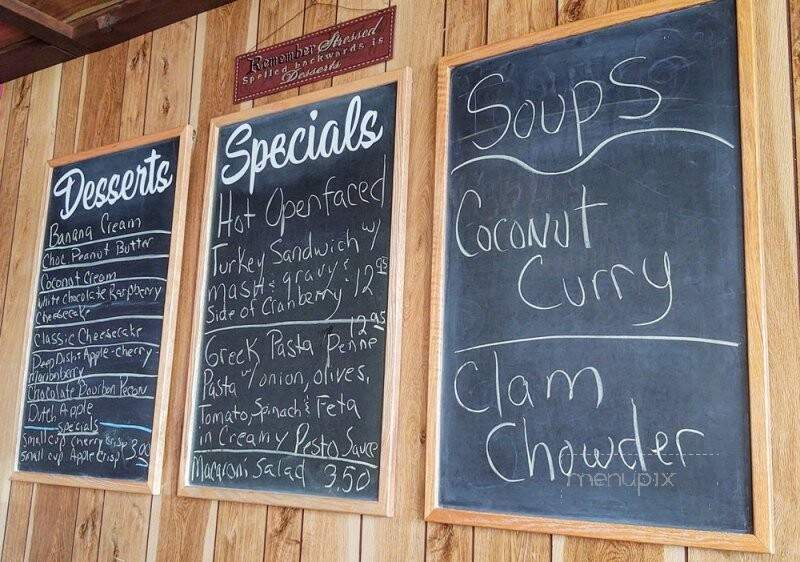 Remember Stressed
Spelled backwards is
Desserts
Desserts
Banana Cream
Choc Peanut Butter
Coconut Cream
White Chocolate Raspberry
Cheesecake
Classic Cheesecake
Deep Dish: Apple-cherry-
marionberry
Chocolate Bourbon Pecan
Dutch Apple
specials
small cup cherry crisp 3.00
small cup Apple Crisp
Specials
Hot Openfaced
Turkey Sandwich w/
mash & gravy &
side of Cranberry 12.95
12.95
Greek Pasta Penne
Pasta w/ onion, olives,
Tomato, Spinach & Feta
in Creamy Pesto Sauce
Macaroni Salad 3.50
Soups
Coconut
Curry
Clam
Chowder
menupix